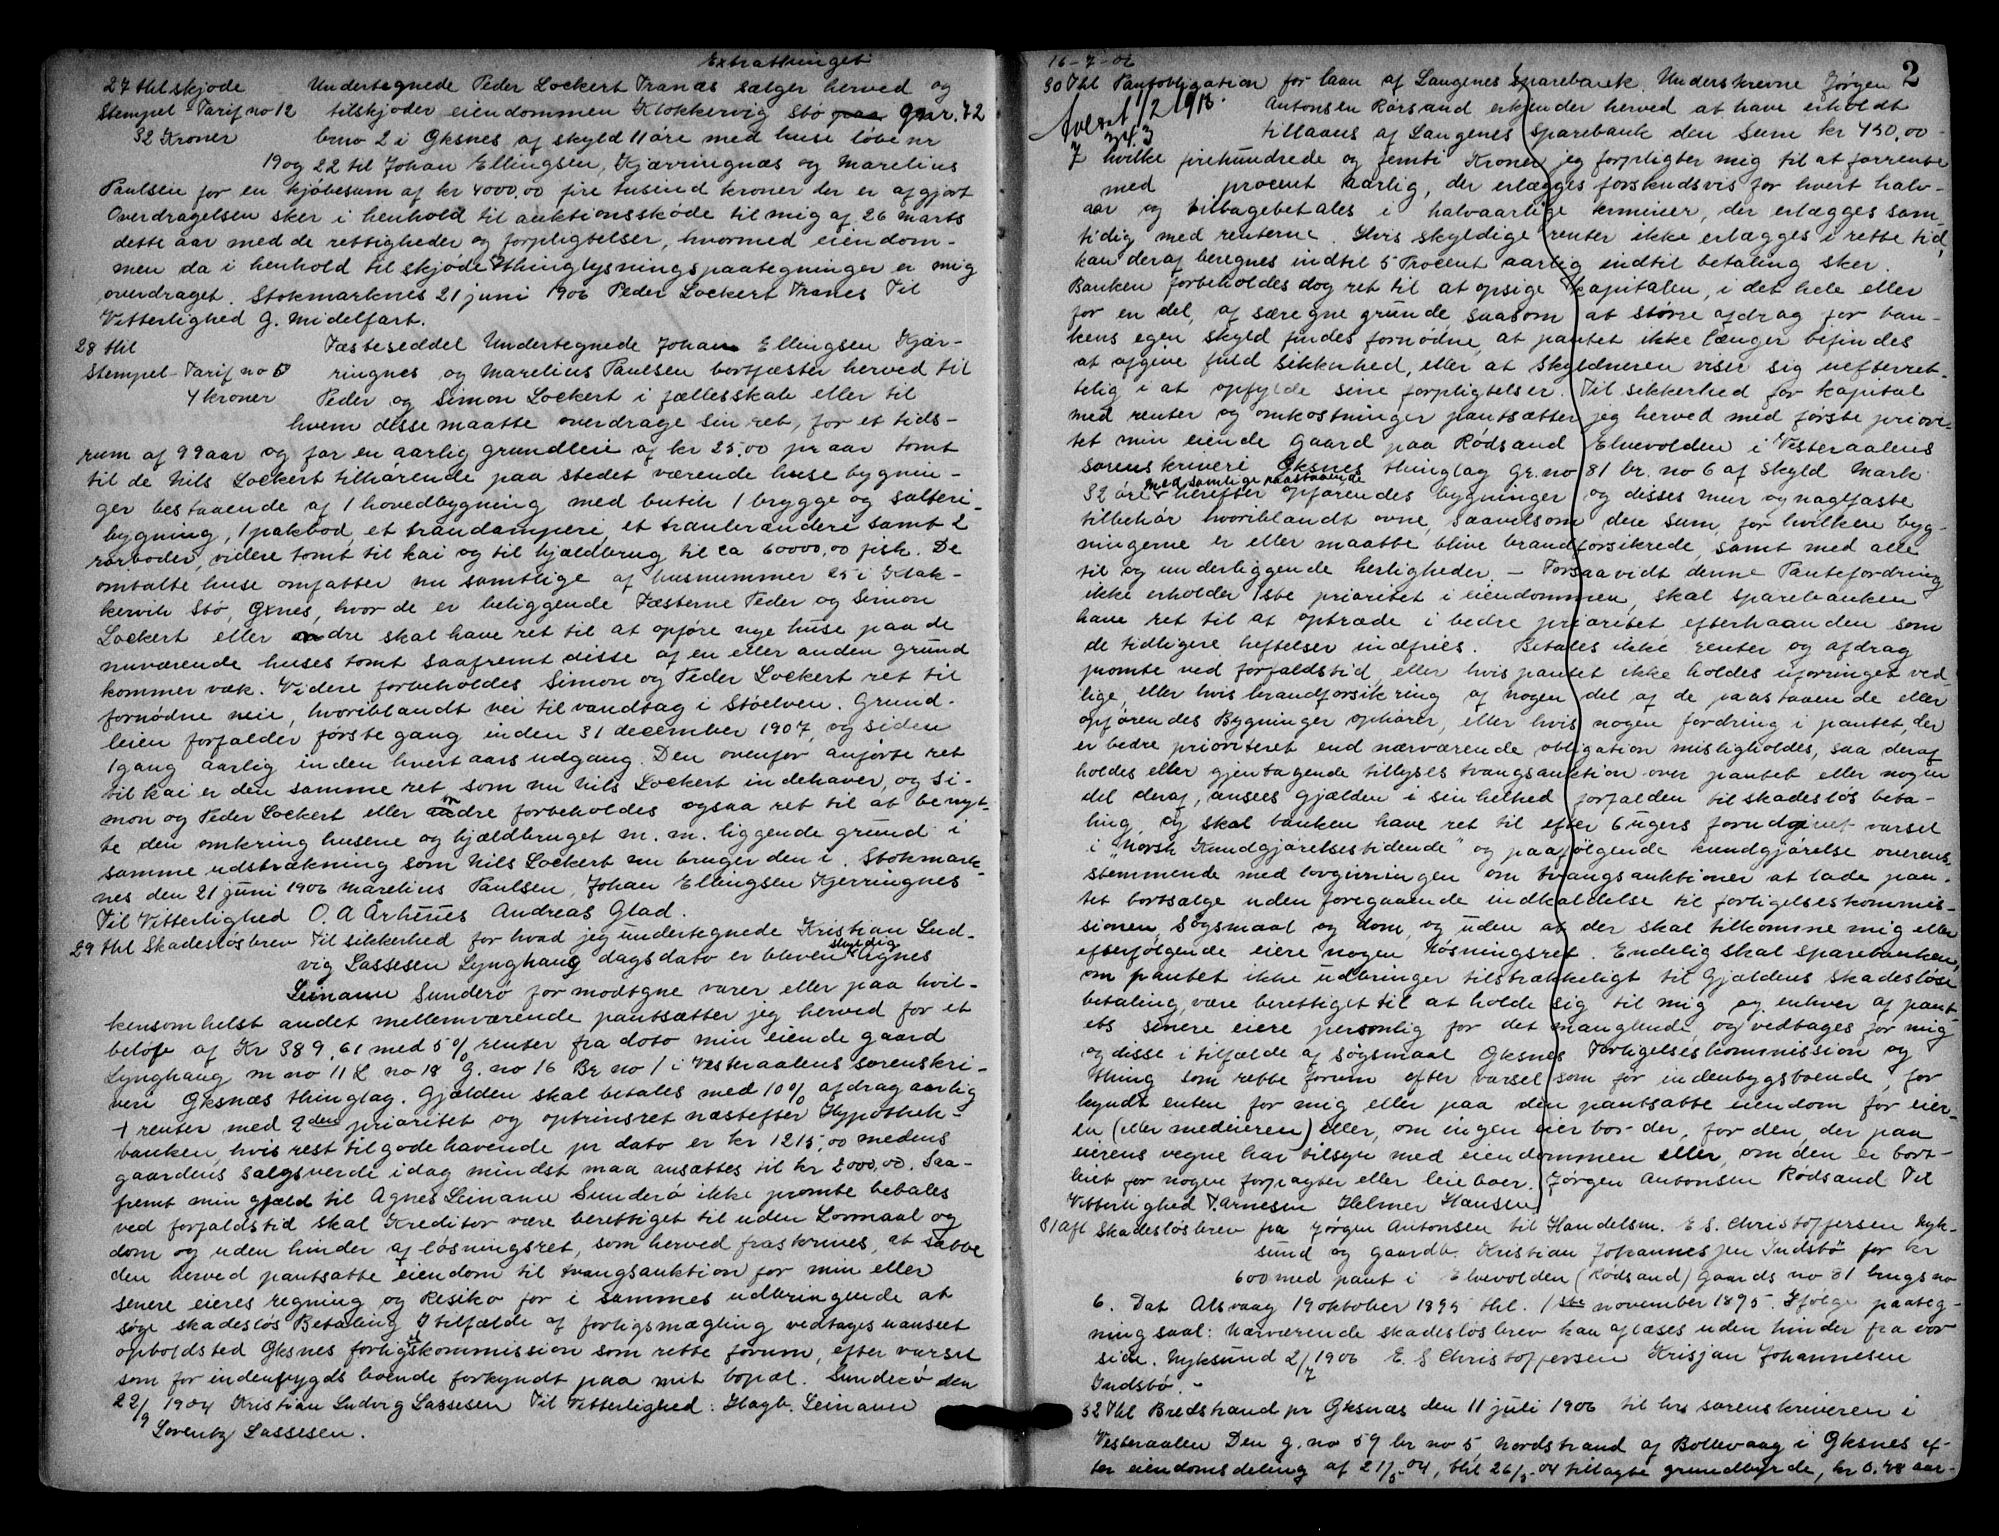 Extrathinget
27 thl skjøde Undertegnede Peder Lockert Vranæs sælger herved og
Stempel Tarif no 12 tilskjøder eiendommen Klokkervig Stø paa gnr. 72
32 Kroner brno 2 i Øksnes af skyld 11 øre med huse løbe nr
19 og 22 til Johan Ellingsen, Kjærringnæs og Marelius
Paulsen for en kjøbesum af kr 4000,00 fire tusind kroner der er afgjort
Overdragelsen sker i henhold til auktionsskøde til mig af 26 marts
dette aar med de rettigheder og forpligtelser, hvormed eiendom-
men da i henhold til skjøde thinglysningspaategninger er mig
overdraget. Stokmarknes 21 juni 1906 Peder Lockert Vranes Til
Vitterlighed G. Midelfart.
28 thl Fæsteseddel Undertegnede Johan Ellingsen Kjær-
Stempel-Tarif no 6 ringnes og Marelius Paulsen bortfæster herved til
4 kroner Peder og Simon Lockert i fællesskab eller til
hvem disse maatte overdrage sin ret, for et tids-
rum af 99 aar og for en aarlig grundleie af kr 25.00 pr aar tomt
til de Nils Lockert tilhørende paa stedet værende huse bygnin-
ger bestaaende af 1 hovedbygning med butik 1 brygge og salteri-
bygning, 1 pakbod, et trandamperi, et tranbrænderi samt 2
rorboder, videre tomt til kai og til hjældbrug til ca 60000,00 fisk. De
omtalte huse omfatter nu samtlige af husnummer 25 i Klok-
kervik Stø, Øxnes, hvor de er beliggende Fæsterne Peder og Simon
Lockert eller andre skal have ret til at opføre nye huse paa de
nuværende huses tomt saafremt disse af en eller anden grund
kommer væk. Videre forbeholdes Simon og Peder Lockert ret til
fornødne veie, hvoriblandt vei til vandtag i Støelven. Grund-
leien forfalder første gang inden 31 december 1907, og siden
1 gang aarlig inden hvert aars udgang. Den ovenfor anførte ret
til kai er den samme ret, som nu Nils Lockert indehaver, og Si-
mon og Peder Lockert eller andre forbeholdes ogsaa ret til at benyt-
te den omkring husene og hjældbruget m. m. liggende grund i
samme udstrækning som Nils Lockert nu bruger den i. Stokmark-
nes den 21 juni 1906 Marelius Paulsen, Johan Ellingsen Kjerringnes
Til Vitterlighed O. A Århuus Andreas Glad.
29 thl Skadesløsbrev Til sikkerhed for hvad jeg undertegnede Kristian Lud-
vig Lassesen Lynghaug dagsdato er bleven skyldig Agnes
Leinann Sunderø for modtagne varer eller paa hvil-
kensomhelst andet mellemværende pantsætter jeg herved for et
beløb af Kr 389,61 med 5% renter fra dato min eiende gaard
Lynghaug m no 11 L no 18 G. no 16 Br no 1 i Vesteraalens sorenskri-
veri Øksnæs thinglag. Gjælden skal betales med 10% afdrag aarlig
+ renter med 2den prioritet og optrinsret næstefter Hypothek-
banken, hvis rest tilgodehavende pr dato er kr 1215,00 medens
gaardens salgsverde i dag mindst maa ansættes til kr 2000,00. Saa-
fremt min gjæld til Agnes Leinann Sunderø ikke promte betales
ved forfaldstid skal Kreditor være berettiget til uden Lovmaal og
dom og uden hinder af løsningsret, som herved fraskrives, at sætte
den herved pantsatte eiendom til tvangsauktion for min eller
senere eieres regning og Resiko for i sammes udbringende at
søge skadesløs Betaling I tilfælde af forligsmægling vedtages uanseet
opholdsted Øksnes forligskommission som rette forum, efter varsel
som for indenbygds boende forkyndt paa mit bopæl. Sunderø den
22/9 1904 Kristian Ludvig Lassesen Til Vitterlighed: Hagb. Leinann
Lorentz Lassesen.
16-7-06
2
30 Thl Pantobligation for laan af Langenes Sparebank. Underskrevne Jørgen
Avlæst 1/2 1913. Antonsen Rørsand erkjender herved at have erholdt
343 tillaans af Langenes Sparebank den Sum kr 450,00-
hvilke firehundrede og femti Kroner jeg forpligter mig til at forrente
med procent aarlig, der erlægges forskudsvis for hvert halv-
aar og tilbagebetales i halvaarlige terminer, der erlægges sam-
tidig med renterne. Hvis skyldige renter ikke erlægges i rette tid,
kan deraf beregnes indtil 5 Procent aarlig indtil betaling sker.
Banken forbeholdes dog ret til at opsige kapitalen, i det hele eller
for en del, af særegne grunde saasom at større afdrag for ban-
kens egen skyld findes fornødne, at pantet ikke længer befindes
at afgive fuld sikkerhed, eller at skyldneren viser sig uefterret-
telig i at opfylde sine forpligtelser. Til sikkerhed for kapital
med renter og omkostninger pantsætter jeg herved med første priori-
tet min eiende Gaard paa Rødsand Elvevolden i Vesteraalens
sorenskriveri Øksnes thinglag Gr. no 81 br. no 6 af skyld Mark
32 øre med samtlige paastaaende herefter opførendes bygninger og disses mur og naglfaste
tilbehør hvoriblandt ovne, saavelsom den sum, for hvilken byg-
ningerne er eller maatte blive brandforsikrede, samt med alle
til og underliggende herligheder. - Forsaavidt denne Pantefordring
ikke erholder 1ste prioritet i eiendommen, skal sparebanken
have ret til at optræde i bedre prioritet efterhaanden som
de tidligere heftelser indfries. Betales ikke renter og afdrag
promte ved forfaldstid, eller hvis pantet ikke holdes uforringet ved
lige, eller hvis brandforsikring af nogen del af de paastaaende eller
opførendes Bygninger ophører, eller hvis nogen fordring i pantet, der
er bedre prioriteret end nærværende obligation misligholdes, saa deraf
holdes eller gjentagende tillyses tvangsauktion over pantet eller nogen
del deraf, ansees Gjælden i sin helhed forfalden til skadesløs beta-
ling, og skal banken have ret til efter 6 ugers forudgivet varsel
i "Norsk Kundgjørelsestidende" og paafølgende kundgjørelse overens-
stemmende med lovgivningen om tvangsauktioner at lade pan-
tet bortsælge uden foregaaende indkaldelse til forligelseskommis-
sionen, Søgsmaal og Dom, og uden at der skal tilkomme mig eller
efterfølgende eiere nogen Løsningsret. Endelig skal sparebanken,
om pantet ikke udbringer tilstrækkeligt til Gjældens skadesløse
betaling, være berettiget til at holde sig til mig og enhver af pant-
ets senere eiere personlig for det manglende, og vedtages for mig
og disse i tilfælde af søgsmaal Øksnes Forligelseskommission og
thing som rette forum efter varsel som for indenbygsboende, for
kyndt enten for mig eller paa den pantsatte eiendom for eier-
en (eller medeieren) eller, om ingen eier bor der, for den, der paa
eierens vegne har tilsyn med eiendommen eller, om den er bort-
leiet for nogen forpagter eller leieboer. Jørgen Antonsen Rødsand Til
Vitterlighed P. Arnesen Helmer Hansen
31 afl Skadesløsbrev fra Jørgen Antonsen til Handelsm. E S. Christoffersen Nyk-
sund og gaardb. Kristian Johannessen Indstø for kr
600 med pant i Elvevolden (Rødsand) Gaards no 81 brugs no
6. Dat Alsvaag 19 oktober 1895 thl. 1ste november 1895. Ifølge paateg-
ning saal: Nærværende skadesløsbrev kan aflæses uden hinder fra vor
side. Nyksund 2/7 1906 E. S Christoffersen Krisjan Johannesen
Indstø. -
32 Thl Bredstrand pr Øksnæs den 11 juli 1906 til hrs sorenskriveren i
Vesteraalen Den g. no 59 br no 5, Nordstrand af Bollevaag i Øksnes ef-
ter eiendomsdeling af 21/5-04, thl 26/5-04 tillagte grundbyrde, kr 0.48 aar-